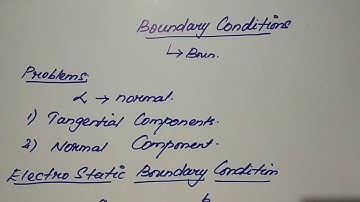 Boundary Conditions
↳ Boun.
Problems:
L → normal.
1) Tangential Components.
2) Normal Component.
Electro Static Boundary Condition
a b